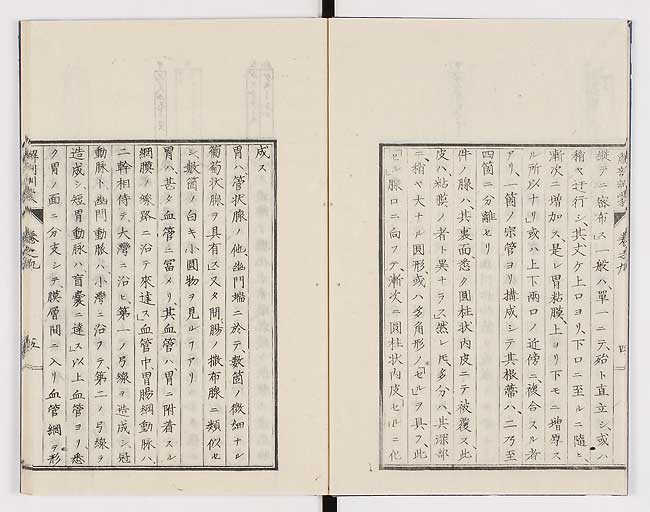 縦テニ密布ス一般ハ單一ニテ、殆ト直立シ、或ハ
稍々迂行シ其丈ケ上口ヨリ、下口ニ至ルニ隨ヒ、
漸次ニ増加ス、是レ胃粘膜、上ヨリ下モニ増厚ス
ル所以ナリ或ハ上下兩口ノ近傍ニ複合スル者
アリ、一箇ノ宗管ヨリ構成シテ其根蒂ハ、二乃至
四箇ニ分離セリ
件ノ腺ハ、其裏面、悉ク圓柱狀内皮ニテ被覆ス此
皮ハ、粘膜ノ者ト異ナラス然レ𪜈多分ハ、其深部
ニ、稍々大ナル圓形、或ハ多角形ノ「セル」ヲ具フ、此
「セル」腺口ニ向フテ、漸次ニ圓柱狀内皮「セル」ニ化
成ス
胃ハ、管狀腺ノ他、幽門端ニ於テ、數箇ノ微細ナル
葡萄狀腺ヲ具有ス又タ間腸ノ撒布腺ニ類似セ
シ、數箇ノ白キ小圓物ヲ見ルアリ
胃ハ、甚タ血管ニ冨メリ、其血管ハ胃ニ附着スル
網膜ノ縁路ニ沿テ來達ス血管中、胃腸網動脈ハ、
二幹相待テ、大灣ニ沿ヒ、第一ノ弓線ヲ造成シ、冠
動脈ト幽門動脈ハ小灣ニ沿フテ、第二ノ弓線ヲ
造成シ、短胃動脈ハ、盲囊ニ達ス以上血管ヨリ、悉
ク胃ノ面ニ分支シテ、膜層間ニ入リ血管網ヲ形